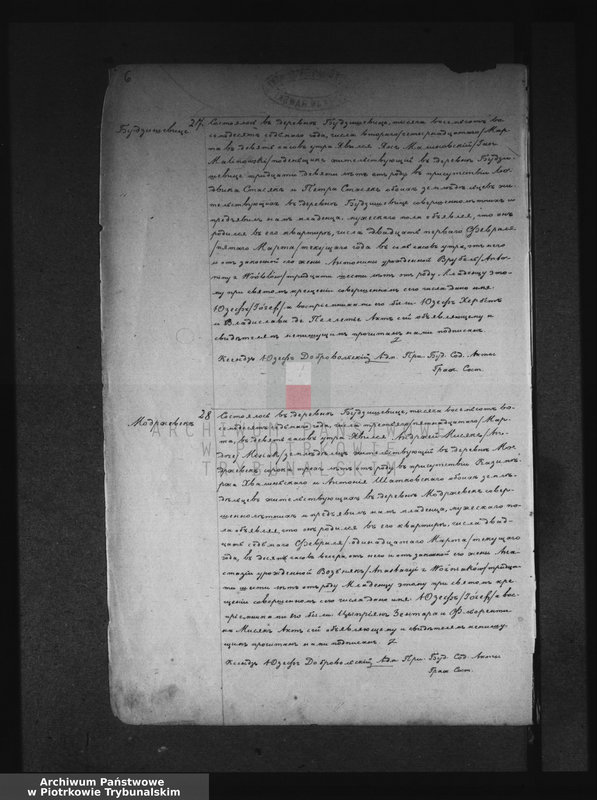 6
Будзишевице
27. Состоялось въ деревнѣ Будзишевице, тысяча восемьсотъ во
семьдесятъ седьмаго года, числа втораго/четырнадцатаго/Мар
та въ девять часовъ утра. Явился Янъ Малиновскій/Jan
Malinowski/поденщикъ жительствующій въ деревнѣ Будзи-
шевице тридцати девяти лѣтъ отъ роду, въ присутствіи
Стасяк и Петра Стасяк обоихъ земледѣльцевъ жи
тельствующихъ въ деревнѣ Будзишевице совершеннолѣтнихъ и
предъявилъ намъ младенца, мужескаго пола объявляя, что онъ
родился въ его квартирѣ, числа двадцать перваго Февраля
/пятаго Марта/текущаго года въ семь часовъ утра, отъ него
и отъ законной его жены Антонины урожденной
тридцати шести лѣтъ отъ роду. Младенцу это
му при святомъ крещеніи совершенномъ сего числа дано имя:
Юзефъ/Józef/а воспріемниками его были Юзефъ
и Владислава Актъ сей объявляющему и
свидѣтелямъ неписьменнымъ прочитанъ нами подписанъ.
Ксендзъ Юзефъ Добровольскій Адм. Пр. Буд. Сод. Акты
Граж. Сост.
Модржевекъ
28 Состоялось въ деревнѣ Будзишевице, тысяча восемьсотъ во
семьдесятъ седьмаго года, числа третьяго/пятнадцатаго/Мар
та, въ девять часовъ утра. Явился Андржей Мисякъ/An-
drzej Misiak/земледѣлецъ жительствующій въ деревнѣ Мод
ржевекъ сорока трехъ лѣтъ отъ роду въ присутствіи Казими-
ра Хвалинскаго и Антонія Шатковскаго обоихъ земле-
дѣльцевъ жительствующихъ въ деревнѣ Модржевекъ совер-
шеннолѣтнихъ и предъявилъ намъ младенца, мужескаго по-
ла объявляя, что онъ родился въ его квартирѣ, числа двад-
цать седьмаго Февраля/одинадцатаго Марта/текущаго
года, въ десять часовъ вечера, отъ него и отъ законной его жены Ана
стазіи урожденной Возьнякъ/Anastazyi z Woźniaków/тридца
ти шести лѣтъ отъ роду. Младенцу этому при святомъ кре-
щеніи совершенномъ сего числа дано имя Юзефъ/Józef/а вос-
пріемниками его были: Цыпріянъ и Флоренти
на Мисякъ Актъ сей объявляющему и свидѣтелямъ неписьмен
нымъ прочитанъ нами подписанъ.
Ксендзъ Юзефъ Добровольскій Адм. Пр. Буд. Сод. Акты
Граж. Сост.
ARCHIWUM PAŃSTWOWE
W PIOTRKOWIE
TRYBUNALSKIM
Archiwum Państwowe
w Piotrkowie Trybunalskim